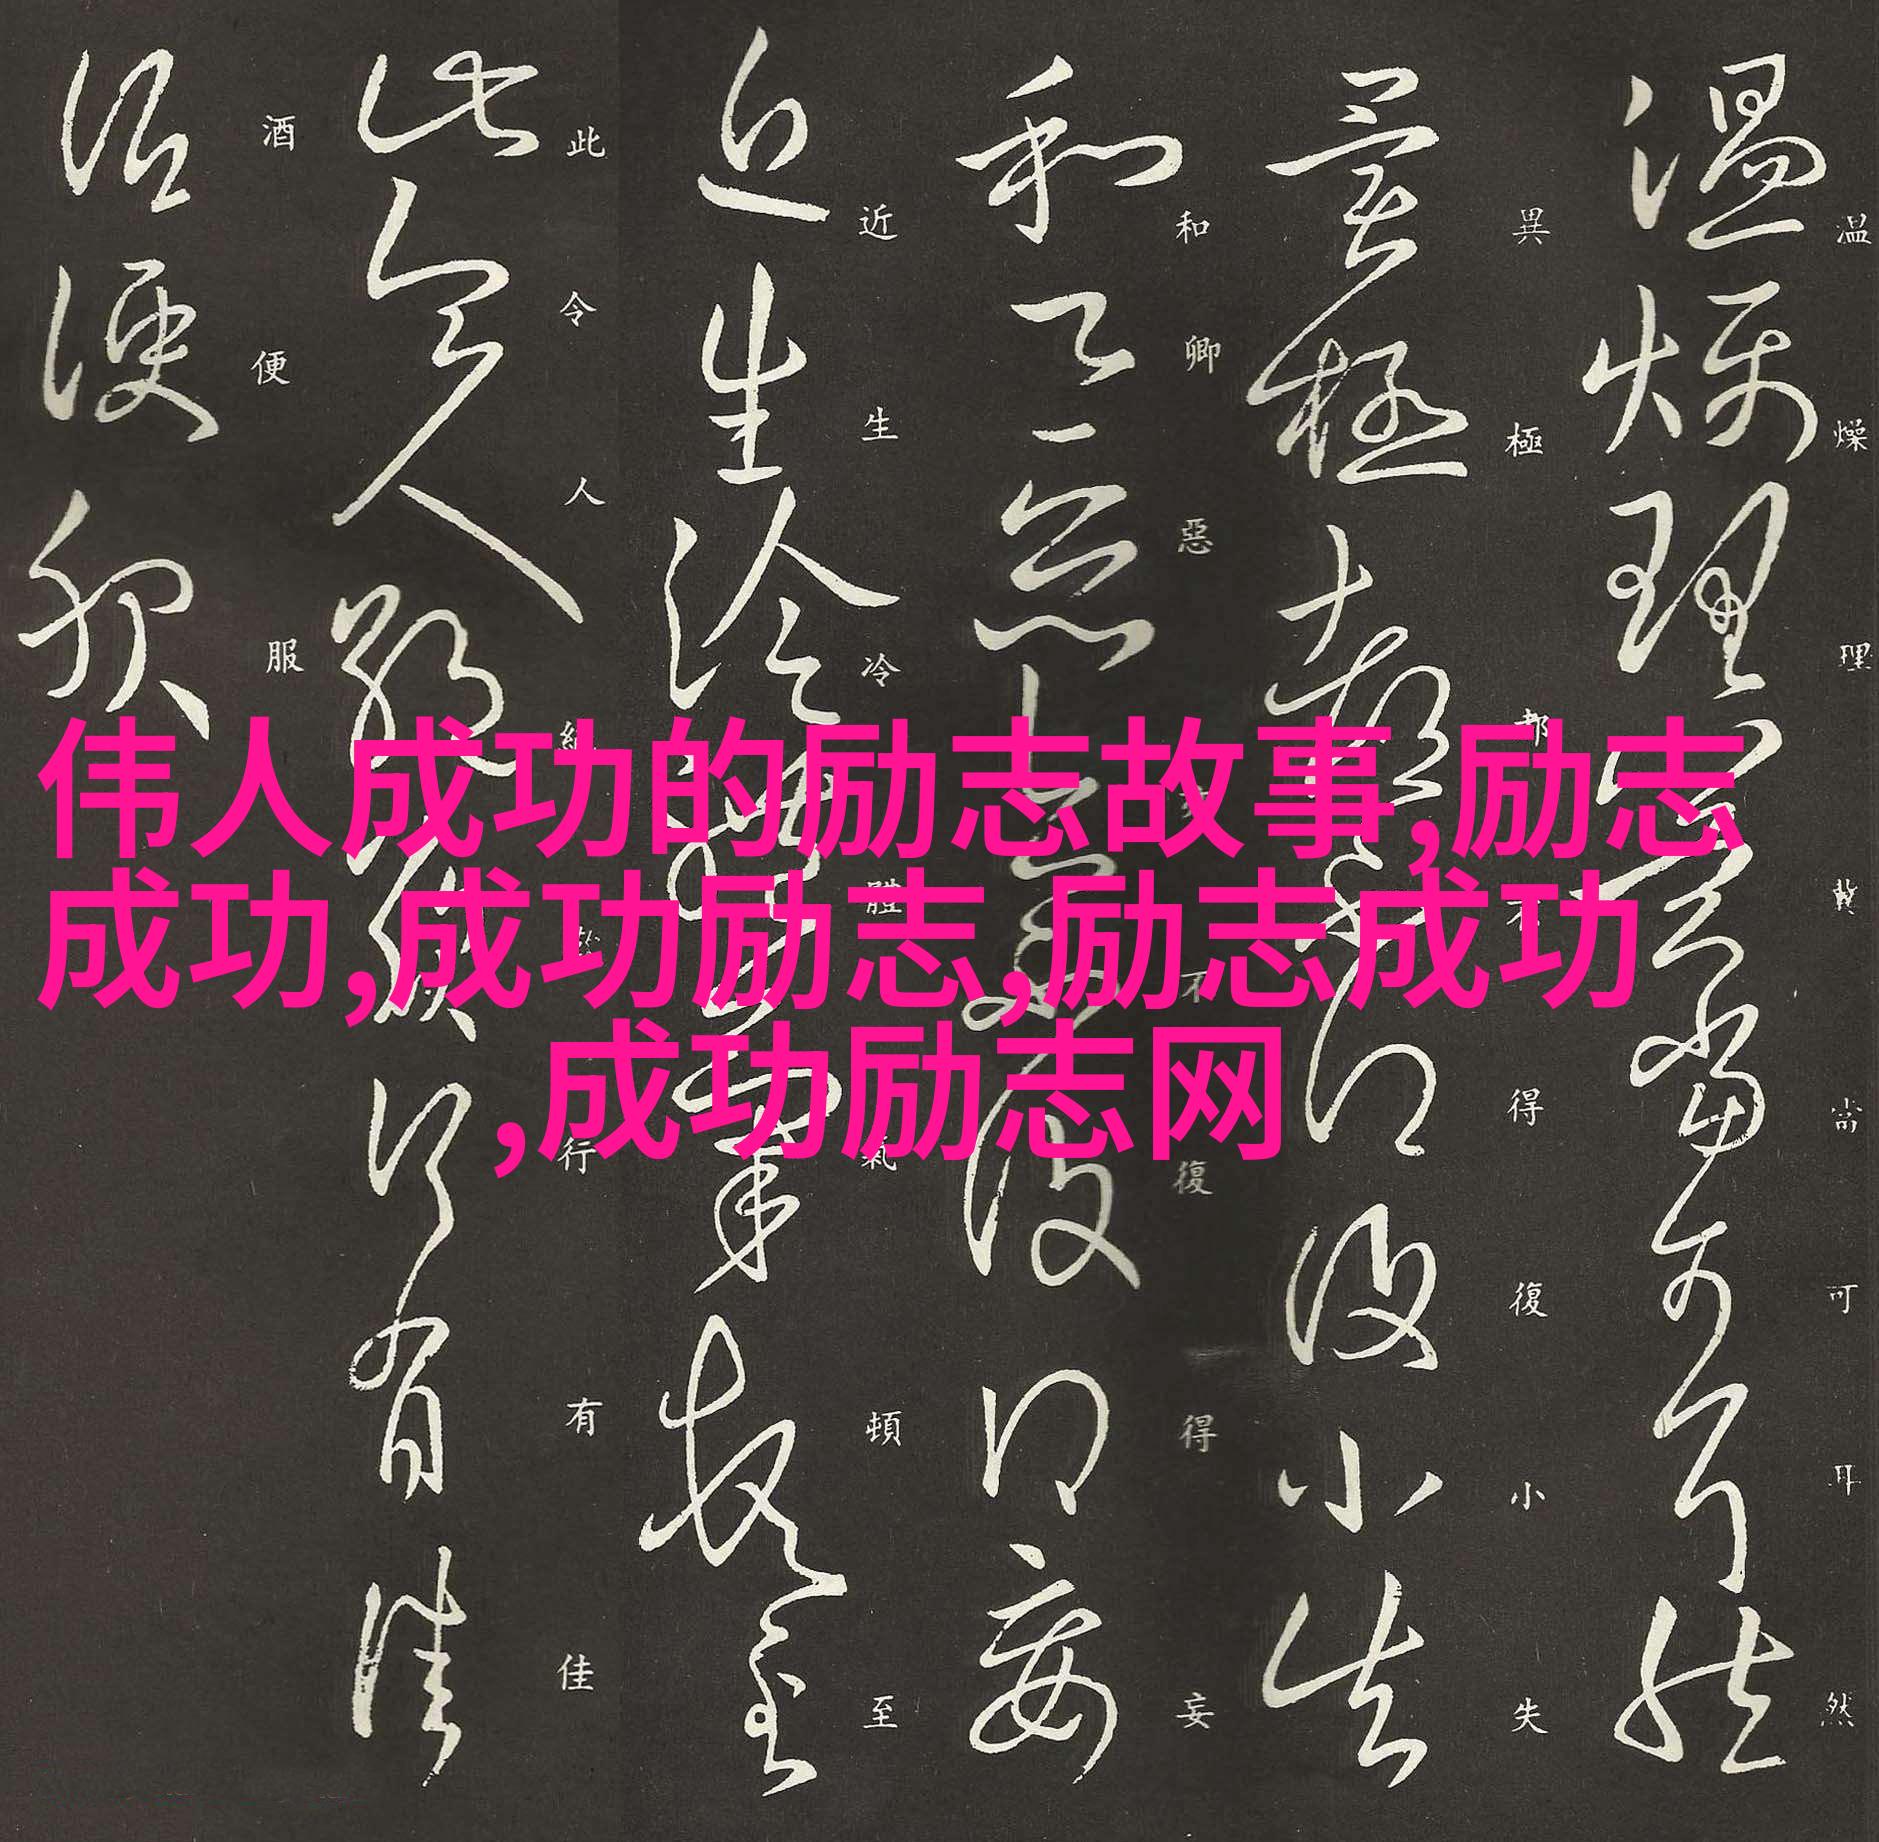 伟人成功的励志故事,励志
成功,成功励志,励志成功
,成功励志网
温燥理冀当可耳然
異極都不得復小失
和卿惡不復得妄
近生冷體氣頓至
此令人絕欲行有佳
酒便服